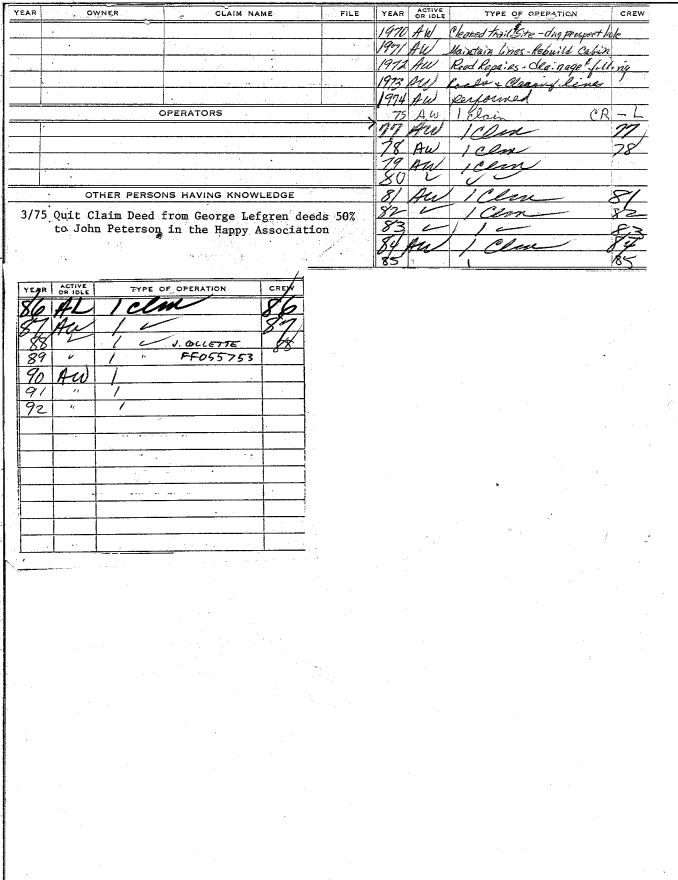 YEAR OWNER CLAIM NAME FILE
OPERATORS
OTHER PERSONS HAVING KNOWLEDGE
3/75 Quit Claim Deed from George Lefgren deeds 50%
to John Peterson in the Happy Association
YEAR ACTIVE OR IDLE TYPE OF OPERATION CREW
1970 AW Cleared trail & site - dug prospect hole
1971 AW Maintain lines - Rebuild Cabin
1972 AW Road Repairs - drainage & filling
1973 AW Roads & Clearing lines
1974 AW performed
75 AW 1 Claim CR - L
77 AW 1 Clm 77
78 AW 1 clm 78
79 AW 1 clm
80 ✓ ✓ ✓
81 AW 1 Clm 81
82 ✓ 1 Clm 82
83 ✓ 1 ✓ 83
84 AW 1 Clm 84
85 1 85
YEAR ACTIVE OR IDLE TYPE OF OPERATION CREW
86 AL 1 clm 86
87 AW 1 ✓ 87
88 ✓ 1 ✓ J. OLLETTE 88
89 " 1 " FF055753
90 AW 1
91 " 1
92 " 1